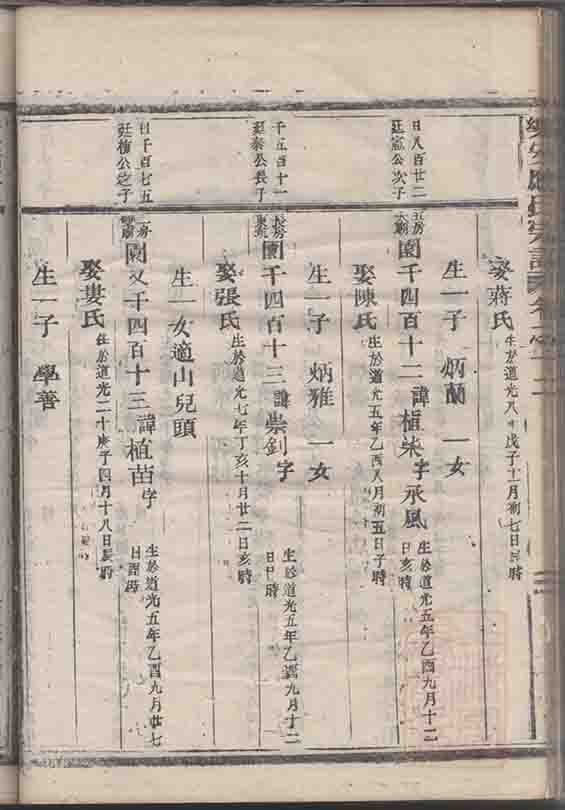 娶蔣氏 生於道光八年戊子十二月初七日 時
生一子 炳蘭 一女
日八百廿二
廷 公次子
五房
園千四百十二諱植 字承風 生於道光五年乙酉九月十二
日亥時
娶陳氏 生於道光五年乙酉八月初五日子時
生一子 炳雅 一女
千五百十一
廷泰公長子
長房
園千四百十三諱崇釗字 生於道光五年乙酉九月十二
日 時
娶張氏 生於道光七年丁亥十月廿二日亥時
生一女適山兒頭
日千百七五
廷梅公之子
二房
園又千四百十三諱植苗字 生於道光五年乙酉九月廿七
日酉時
娶婁氏 生於道光二十庚子四月十八日辰時
生一子 學善